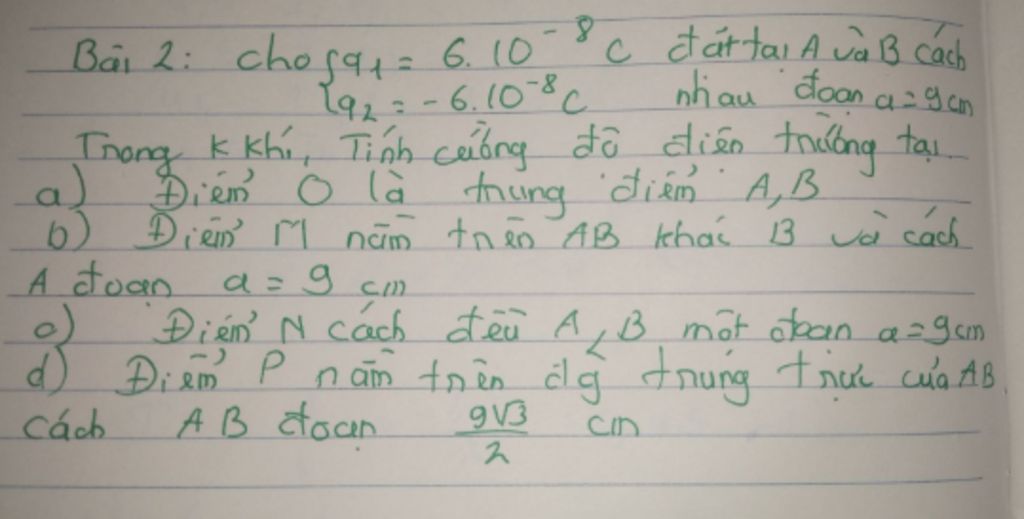 Bài 2: cho { q1 = 6.10⁻⁸ C đặt tại A và B cách
q2 = -6.10⁻⁸ C nhau đoạn a = 9cm
Trong k khí, Tính cường độ điện trường tại
a) Điểm O là trung điểm A,B
b) Điểm M nằm trên AB khác B và cách
A đoạn a = 9 cm
c) Điểm N cách đều A,B một đoạn a = 9cm
d) Điểm P nằm trên đg trung trực của AB
cách AB đoạn 9√3/2 cm